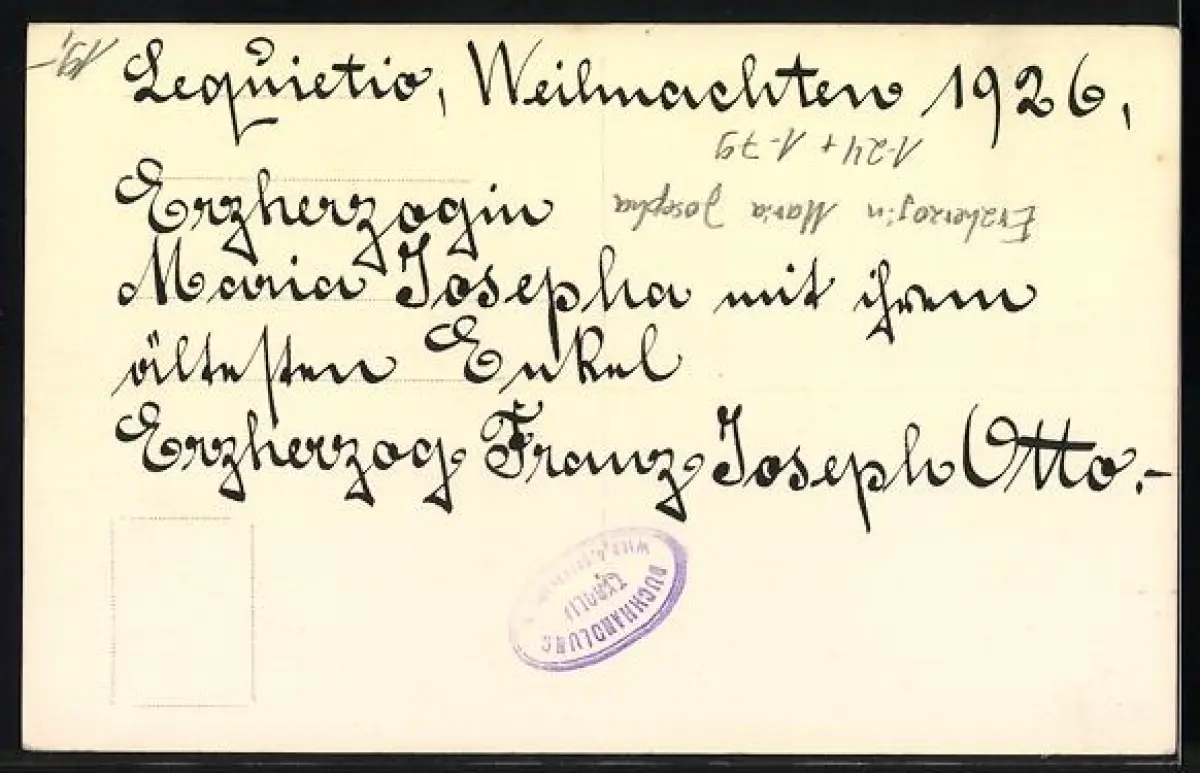 19,-
Lequietio, Weihnachten 1926,
1-24+ 1-79
Erzherzogin
Erzherzogin Maria Josepha
Maria Josepha mit ihrem
ältesten Enkel
Erzherzog Franz Joseph Otto.-
BUCHHANDLUNG
TYROLIA
WIEN,